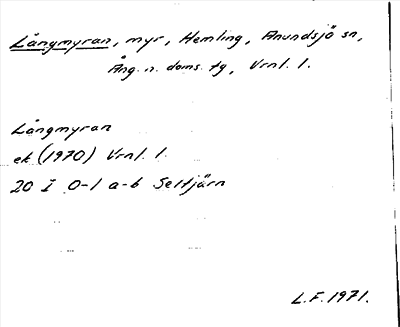 Långmyran, myr, Hemling, Anundsjö sn,
Ång. n. doms. tg, Vrnl. l.
Långmyran
ek (1970) Vrnl. l.
20 I 0-1 a-b Seltjärn
L.F. 1971.